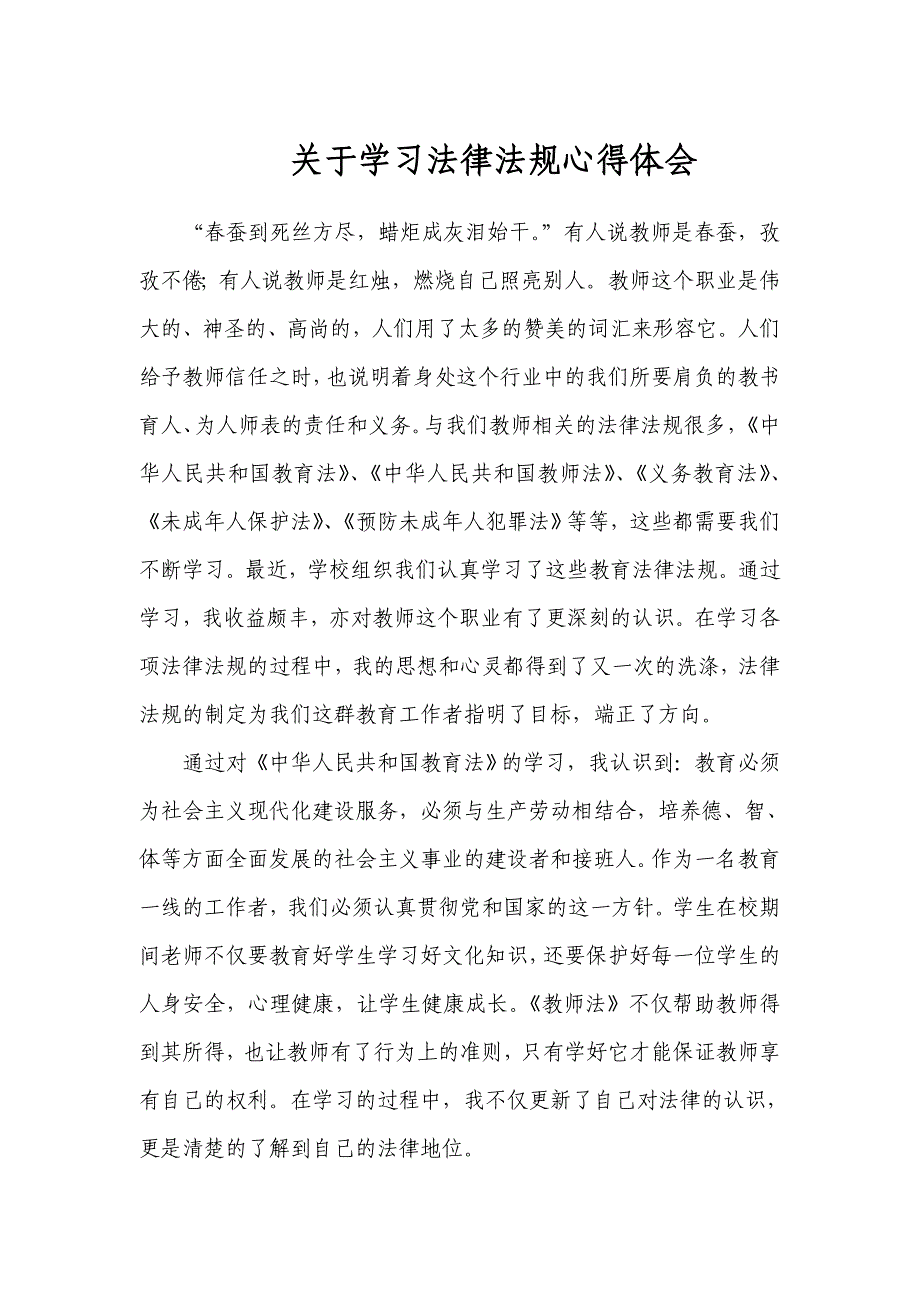 关于学习法律法规心得体会
“春蚕到死丝方尽，蜡炬成灰泪始干。”有人说教师是春蚕，孜
孜不倦；有人说教师是红烛，燃烧自己照亮别人。教师这个职业是伟
大的、神圣的、高尚的，人们用了太多的赞美的词汇来形容它。人们
给予教师信任之时，也说明着身处这个行业中的我们所要肩负的教书
育人、为人师表的责任和义务。与我们教师相关的法律法规很多，《中
华人民共和国教育法》、《中华人民共和国教师法》、《义务教育法》、
《未成年人保护法》、《预防未成年人犯罪法》等等，这些都需要我们
不断学习。最近，学校组织我们认真学习了这些教育法律法规。通过
学习，我收益颇丰，亦对教师这个职业有了更深刻的认识。在学习各
项法律法规的过程中，我的思想和心灵都得到了又一次的洗涤，法律
法规的制定为我们这群教育工作者指明了目标，端正了方向。
通过对《中华人民共和国教育法》的学习，我认识到：教育必须
为社会主义现代化建设服务，必须与生产劳动相结合，培养德、智、
体等方面全面发展的社会主义事业的建设者和接班人。作为一名教育
一线的工作者，我们必须认真贯彻党和国家的这一方针。学生在校期
间老师不仅要教育好学生学习好文化知识，还要保护好每一位学生的
人身安全，心理健康，让学生健康成长。《教师法》不仅帮助教师得
到其所得，也让教师有了行为上的准则，只有学好它才能保证教师享
有自己的权利。在学习的过程中，我不仅更新了自己对法律的认识，
更是清楚的了解到自己的法律地位。